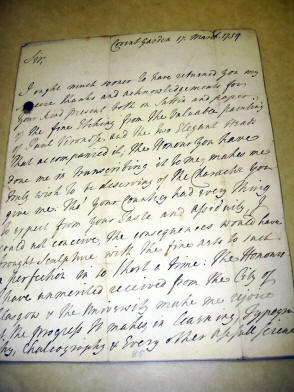 Covent Garden 17. March 1759
Sir,
I ought much sooner to have returned you my
sincere thanks and acknowledgements for
your kind present both on Sattin and paper
of the fine Etching from the Valuable painting
of Paul Veronese, and the two Elegant Prints
that accompanied it, the Honour you have
done me in Inscribing it to me, makes me
only wish to be deserving of the Character you
give me. Tho' your Country had every thing
to expect from your Taste and assiduity, I
could not conceive, the consequences would have
brought Sculpture with the fine arts to such
a perfection in so short a time: The Honours
I have unmerited received from the City of
Glasgow & the University make me rejoice
at the progress it makes in learning, Typogra
phy, Chalcography & Every other usefull Science